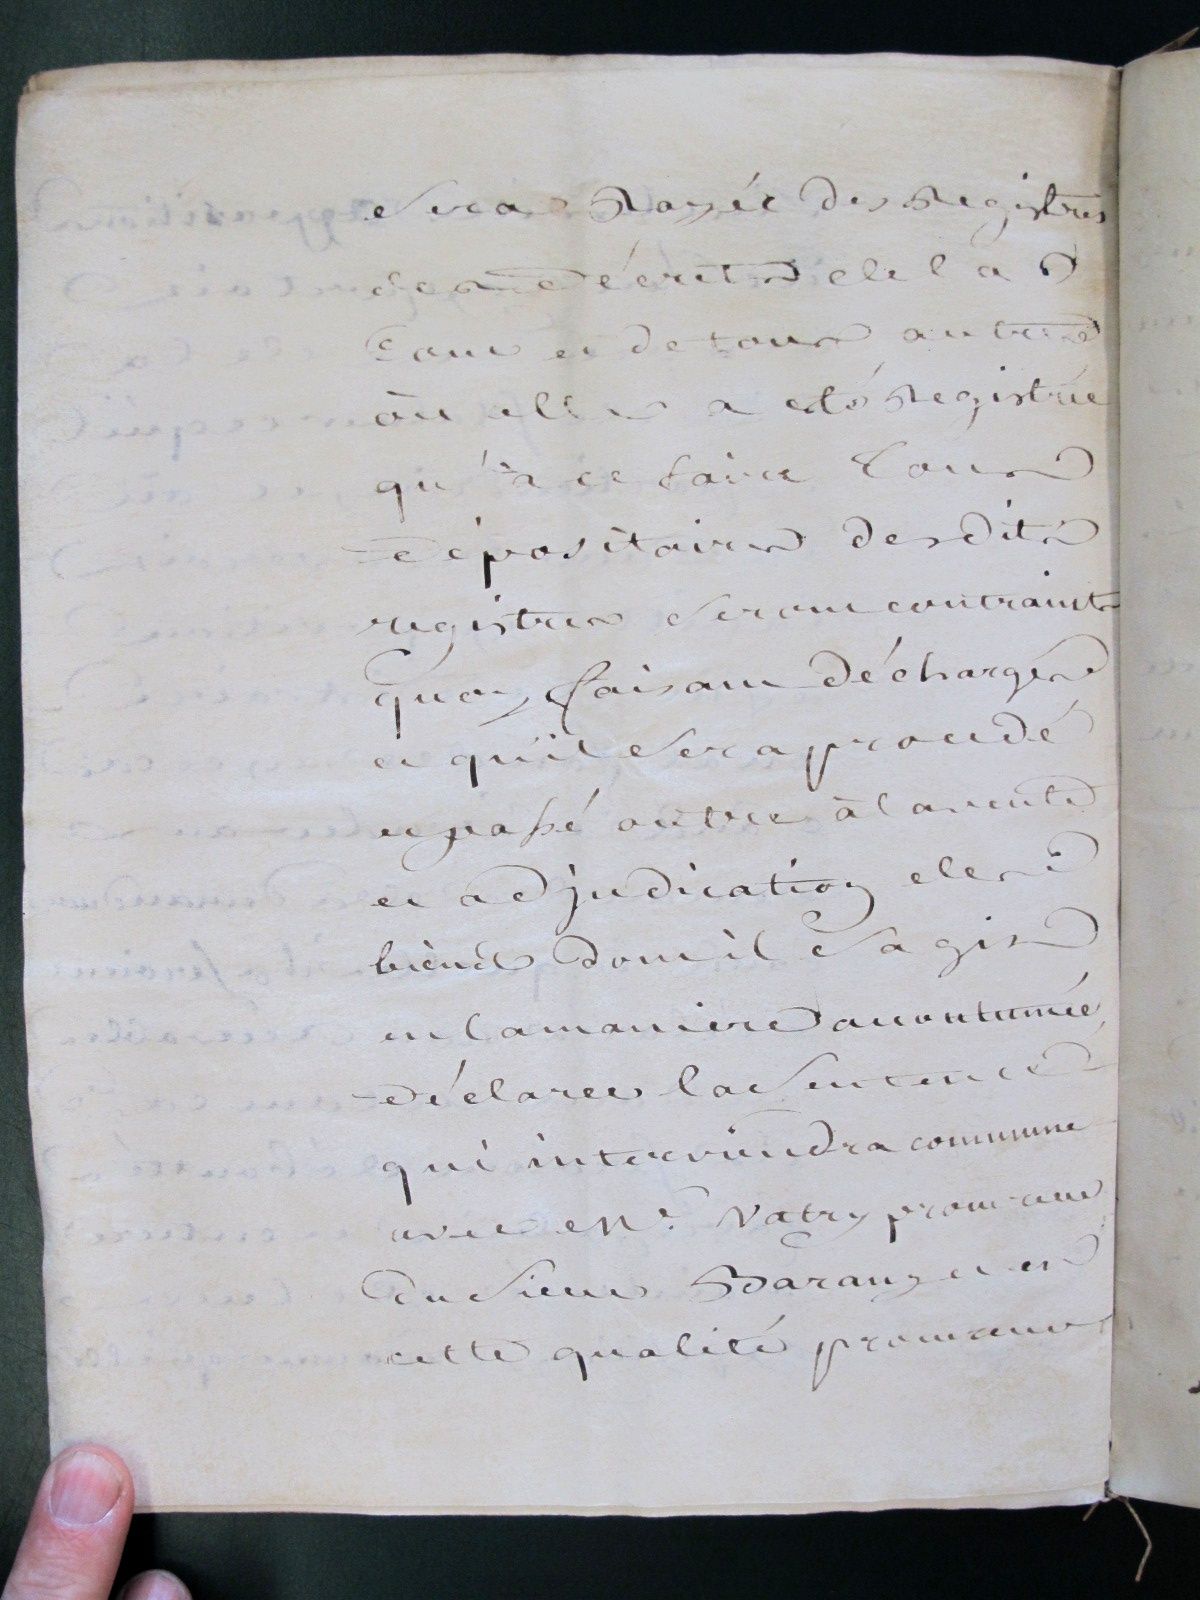 sera Rayée des Registres
des décrets de la
Cour et de tous autres
où elle a été Registrée
qu'à ce faire tous
dépositaires desdits
registres seront contraints
quoy faisant déchargés
et qu'il sera procédé
et passé outre à la vente
et adjudication des
biens dont il s'agit
en la maniere accoutumée
déclarer la Sentence
qui interviendra commune
avec Me. Vatry procureur
du Sieur Barany et en
cette qualité procureur